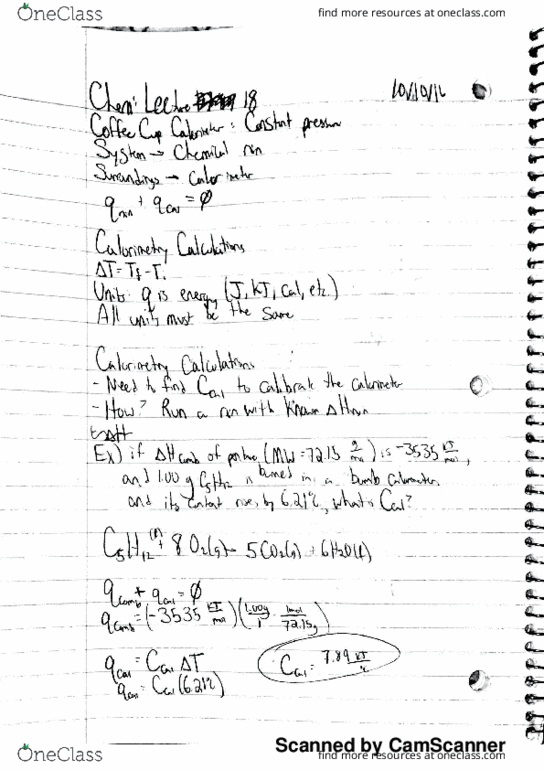 OneClass
find more resources at oneclass.com
Chem: Lecture 18
10/10/16
Coffee Cup Calorimeter: Constant pressure
System → Chemical rxn
Surroundings → calorimeter
q rxn + q cal = Ø
Calorimetry Calculations
ΔT = Tf - Ti
Units: q is energy (J, kJ, cal, etc.)
All units must be the same
Calorimetry Calculations
- Need to find Ccal to calibrate the calorimeter
- How? Run a rxn with known ΔHrxn
ΔH
Ex) if ΔHcomb of pentane (MW = 72.15 g/mol) is -3535 kJ/mol,
and 1.00 g C5H12 is burned in a bomb calorimeter
and its content rises by 6.21°C, what is Ccal?
C5H12(l) + 8O2(g) → 5CO2(g) + 6H2O(l)
qcomb + qcal = Ø
qcomb = (-3535 kJ/mol)(1.00g/1 · 1mol/72.15g)
qcal = Ccal ΔT
Ccal = 7.89 kJ/°C
qcal = Ccal (6.21°C)
Scanned by CamScanner
OneClass
find more resources at oneclass.com